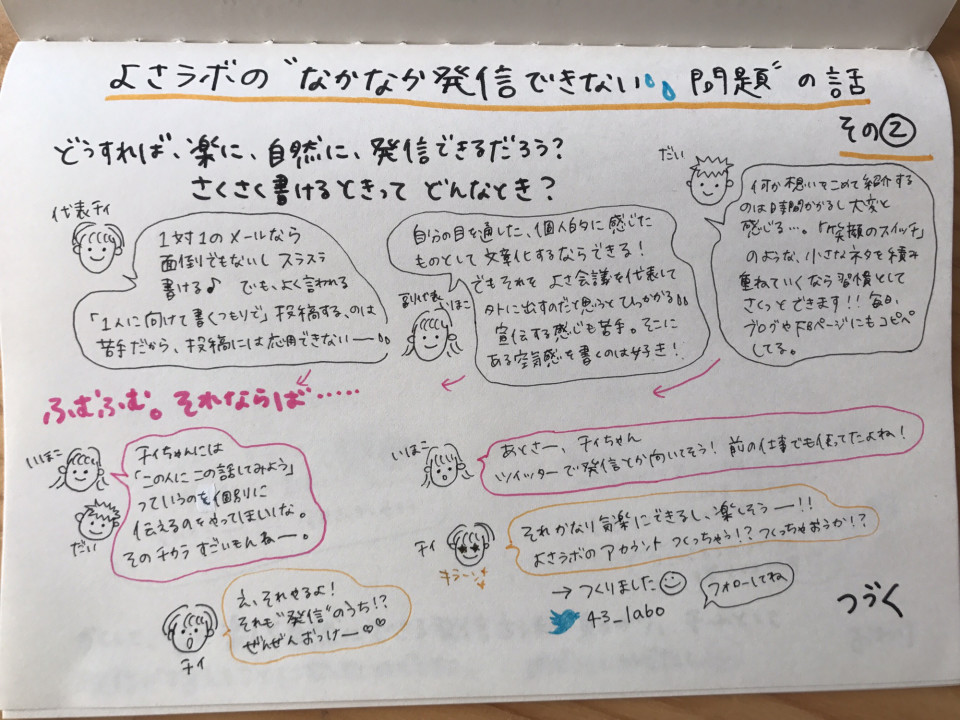 よさラボの"なかなか発信できない問題"の話
その②
どうすれば、楽に、自然に、発信できるだろう?
さくさく書けるときって どんなとき?
代表チィ
1対1のメールなら
面倒でもないし スラスラ
書ける♪ でも、よく言われる
「1人に向けて書くつもりで」投稿する、のは
苦手だから、投稿には応用できないー
副代表
いほこ
自分の目を通した、個人的に感じた
ものとして文章化するならできる!
でもそれを よさ会議を代表して
外に出すのだと思うとひっかかる
宣伝する感じも苦手。そこに
ある空気感を書くのは好き!
だい
何か想いをこめて紹介する
のは時間かかるし大変と
感じる…。「笑顔のスイッチ」
のような、小さなネタを積み
重ねていくなら習慣として
さくっとできます!!毎日、
ブログやFBページにもコピペ
してる。
ふむふむ。それならば……
いほこ
だい
チィちゃんには
「この人にこの話してみよう」
っていうのを個別に
伝えるのをやってほしいな。
そのチカラ すごいもんねー。
いほこ
あとさー、チィちゃん
ツイッターで発信とか向いてそう!前の仕事でも使ってたよね!
チィ
キラーン
それかなり気楽にできるし、楽しそうー!!
よさラボのアカウント つくっちゃう!?つくっちゃおうか!?
チィ
え、それやるよ!
それも"発信"のうち!?
ぜんぜんおっけー♡♡
→つくりました☺
フォローしてね
43_labo
つづく